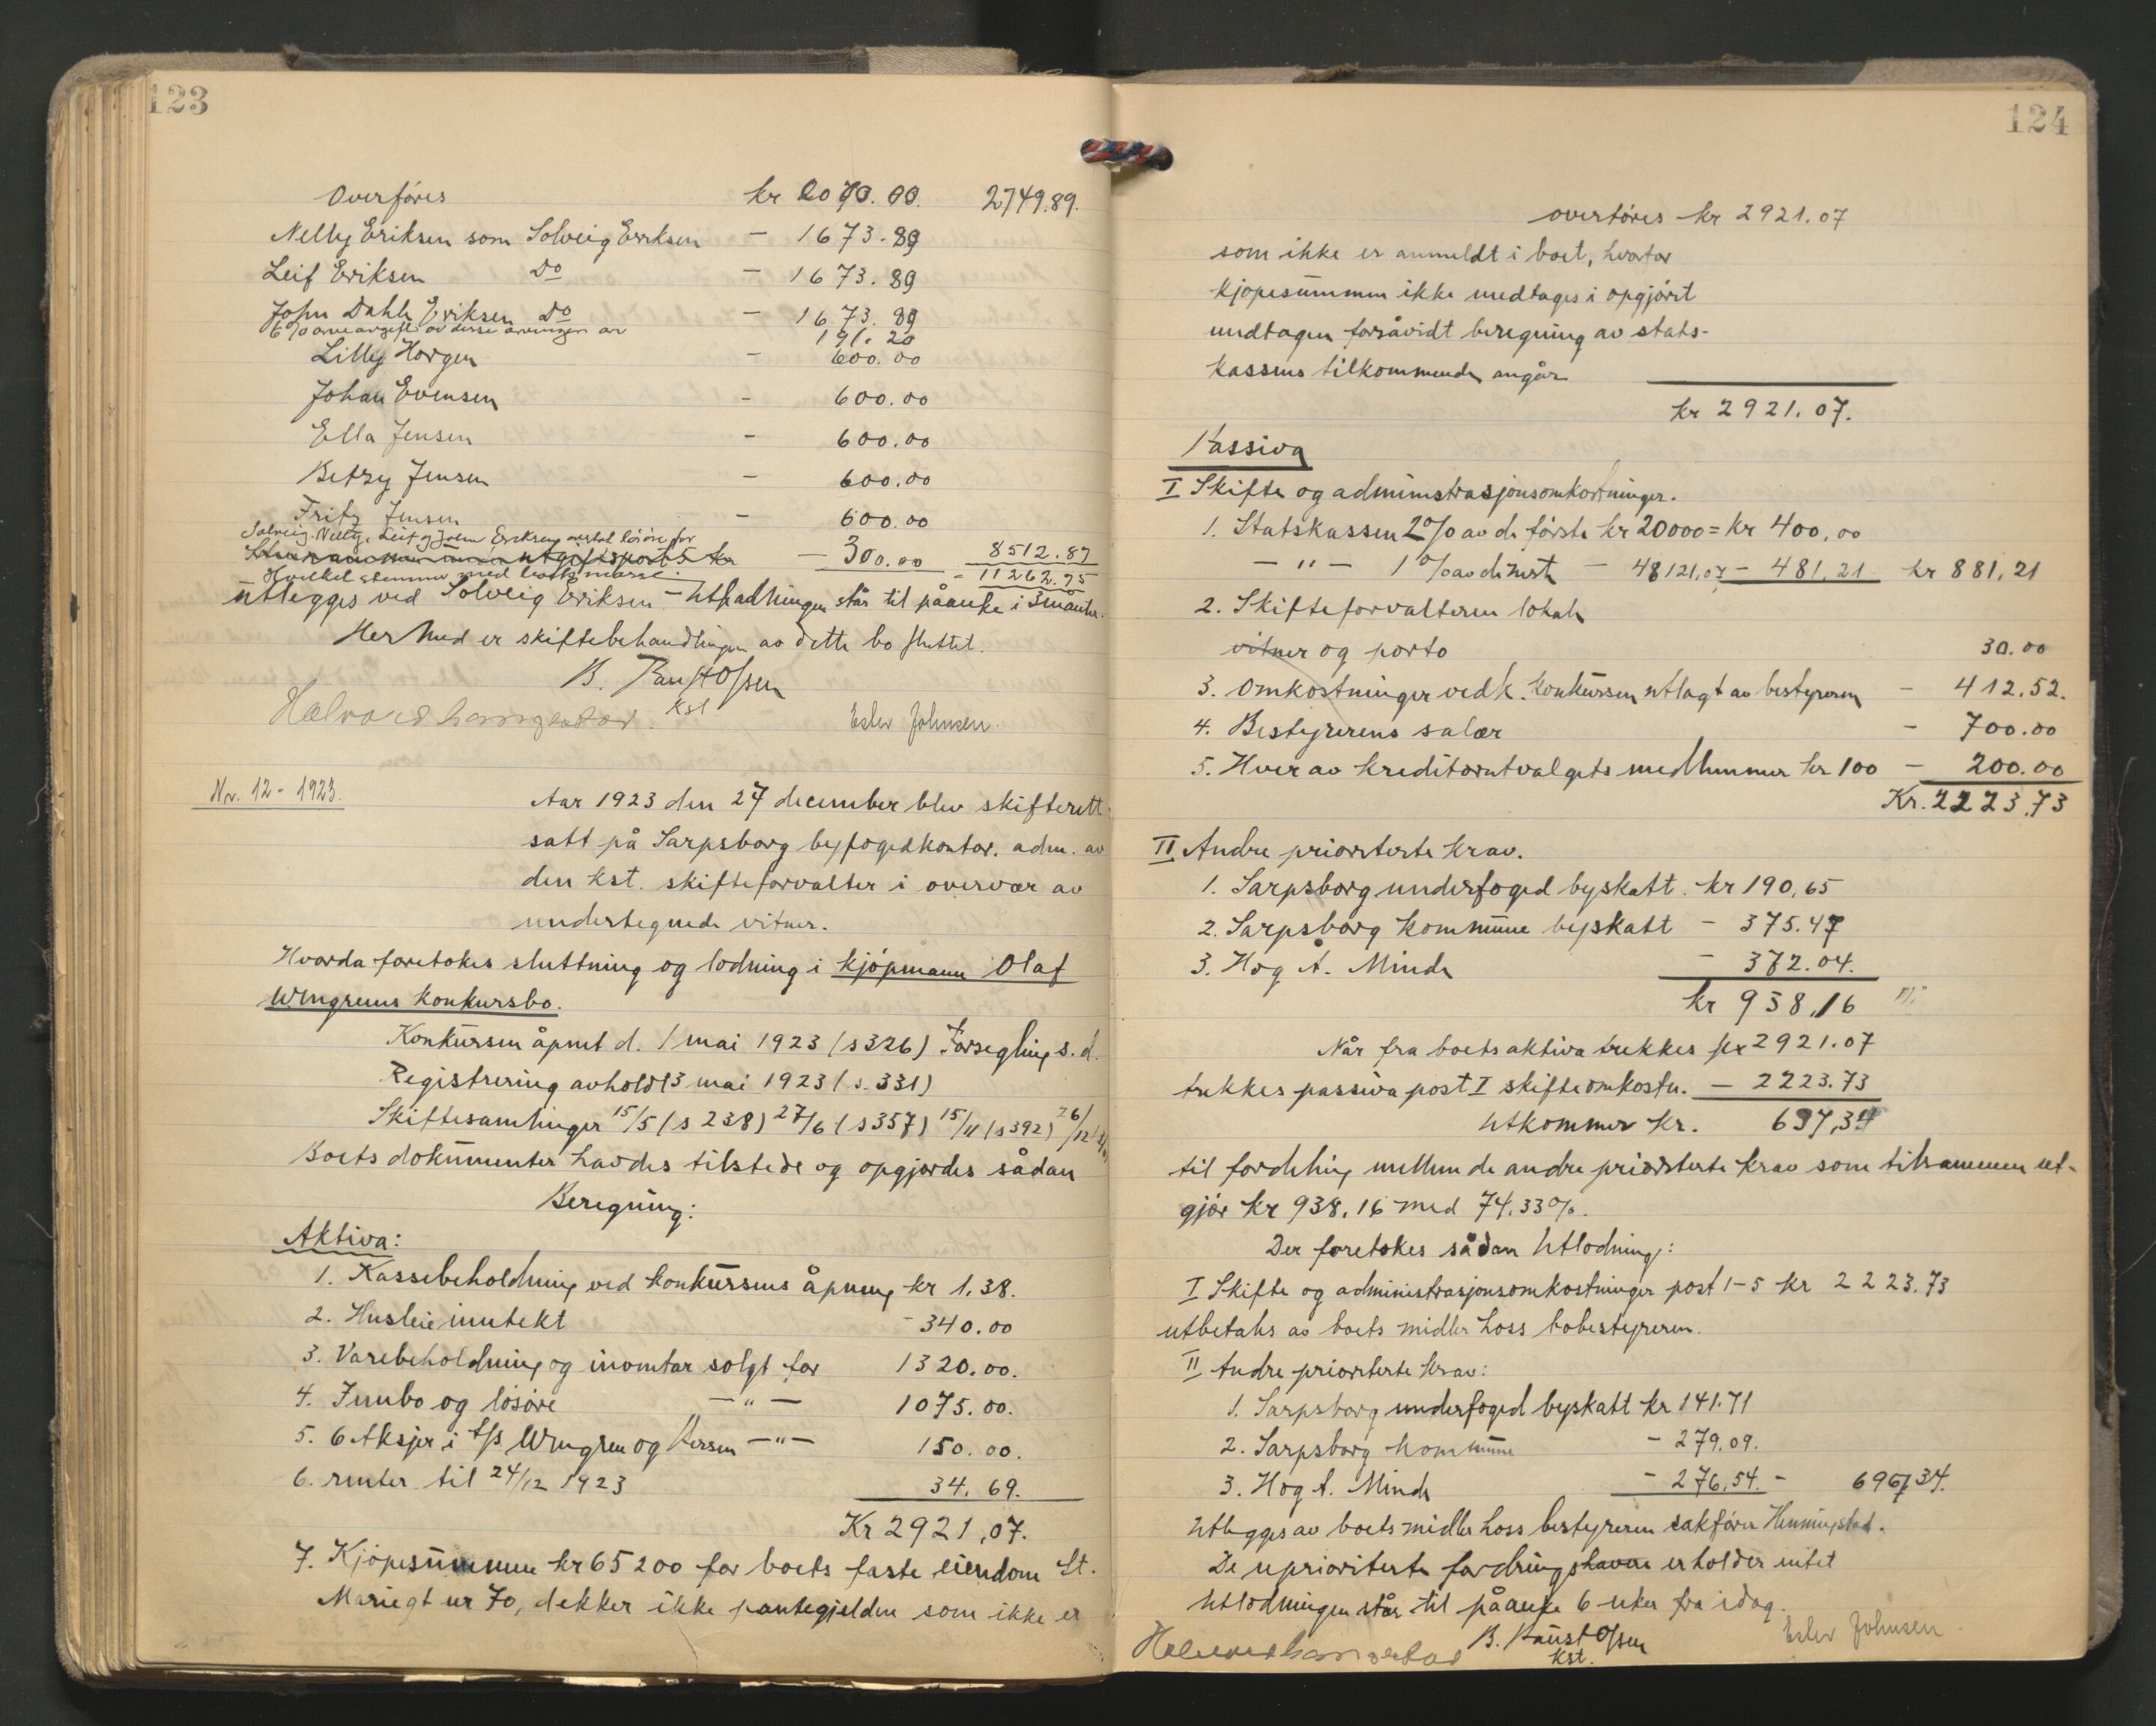 123
Overføres kr 2070.00. 2749.89.
Nelly Eriksen som Solveig Eriksen - 1673.89
Leif Eriksen Do - 1673.89
John Dahle Eriksen Do - 1673.89
6% arveavgift av disse arvinger av 191.20
Lilly Horgen - 600.00
Johan Evensen - 600.00
Ella Jensen - 600.00
Betzy Jensen - 600.00
Fritz Jensen - 600.00
Solveig, Nelly, Leif og John Eriksen avstål løsøre for
utgiftspost 5 kr - 300.00 8512.87
Hvilket stemmer med boets masse. - 11262.75
utlegges ved Solveig Eriksen - Utlodningen står til påanke i 3 månter.
Hermed er skiftebehandlingen av dette bo sluttet.
B. Paust Olsen
kst
Halvard Esler Johnsen.
Nr. 12 - 1923.
Aar 1923 den 27 december blev skifterett
satt på Sarpsborg byfogedkontor. adm. av
den kst. skifteforvalter i overvær av
undertegnede vitner.
Hvorda foretokes sluttning og lodning i kjøpmann Olaf
Wengrens konkursbo.
Konkursen åpnet d. 1 mai 1923 (s 326) Forsegling s. d.
Registrering avholdt 3 mai 1923 (s. 331)
Skiftesamlinger 15/5 (s 238) 27/6 (s 357) 15/11 (s 392) 26/12
Boets dokumenter havdes tilstede og opgjordes sådan
Beregning:
Aktiva:
1. Kassebeholdning ved konkursens åpning kr 1.38.
2. Husleieinntekt - 340.00
3. Varebeholdning og inventar solgt for 1320.00.
4. Innbo og løsøre - " - 1075.00.
5. 6 Aksjer i A/s Wengren og Iversen - " - 150.00.
6. renter til 24/12 1923 34.69.
Kr 2921,07.
7. Kjøpesummen kr 65200 for boets faste eiendom St.
Mariegt nr 70, dekker ikke pantegjelden som ikke er
124
overføres kr 2921.07
som ikke er anmeldt i boet, hvorfor
kjøpesummen ikke medtages i opgjøret
undtagen forsåvidt beregning av stats-
kassens tilkommende angår
kr 2921.07.
Passiva
I Skifte og administrasjonsomkostninger.
1. Statskassen 2% av de første kr 20000 = kr 400,00
- " - 1% av de næste - 48121,07 - 481,21 kr 881,21
2. Skifteforvalteren lokale
vitner og porto 30.00
3. Omkostninger ved k. konkursen utlagt av bestyreren - 412.52.
4. Bestyrerens salær - 700.00
5. Hver av kreditorutvalgets medlemmer kr 100 - 200.00
Kr. 2223,73
II Andre prioriterte krav.
1. Sarpsborg underfoged byskatt. kr 190,65
2. Sarpsborg kommune byskatt - 375.47
3. H og A. Minde - 372.04.
kr 938,16
Når fra boets aktiva trekkes kr 2921.07
trekkes passiva post I skifteomkostn. - 2223.73
Utkommer kr. 697,34
til fordeling mellem de andre prioriterte krav som tilsammen ut-
gjør kr 938.16 med 74.33%.
Der foretokes sådan Utlodning:
I Skifte og administrasjonsomkostninger post 1-5 kr 2223.73
utbetales av boets midler hoss bobestyreren.
II Andre prioriterte krav:
1. Sarpsborg underfoged byskatt kr 141.71
2. Sarpsborg kommune - 279.09.
3. H og A. Minde - 276,54. - 697,34.
Utlegges av boets midler hoss bestyreren sakfører Henningstad.
De uprioriterte fordringshavere erholder intet
Utlodningen står til påanke 6 uker fra idag.
Halvard B. Paust Olsen Esler Johnsen.
kst.